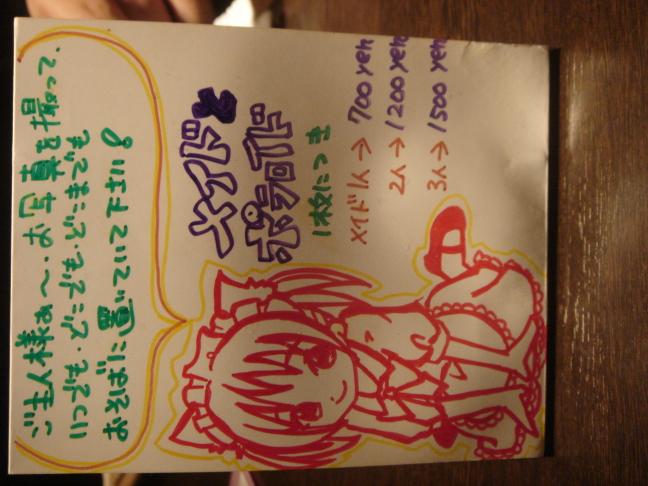 ご主人様ぁ〜、お写真を撮って、
そばに置いていて下さい
メイドと
ポラロイド
1枚につき
メイド1人→700yen
2人→1200yen
3人→1500yen